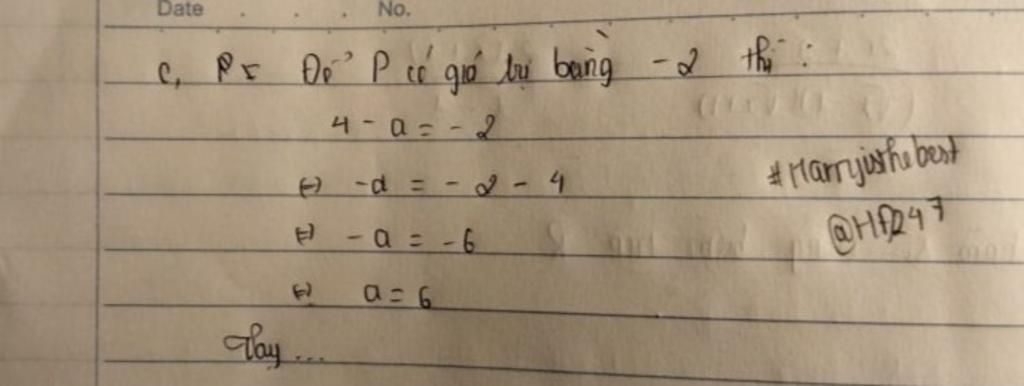 Date . . . No.
c, P = Để P có giá trị bằng -2 thì :
4 - a = - 2
(=) -a = - 2 - 4
(=) - a = -6
(=) a = 6
#Harryisthebest
@HP247
Vậy ...